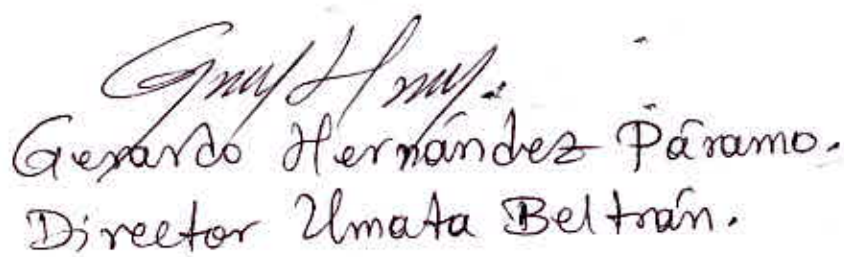 Gerardo Hernández Páramo.
Director Umata Beltrán.